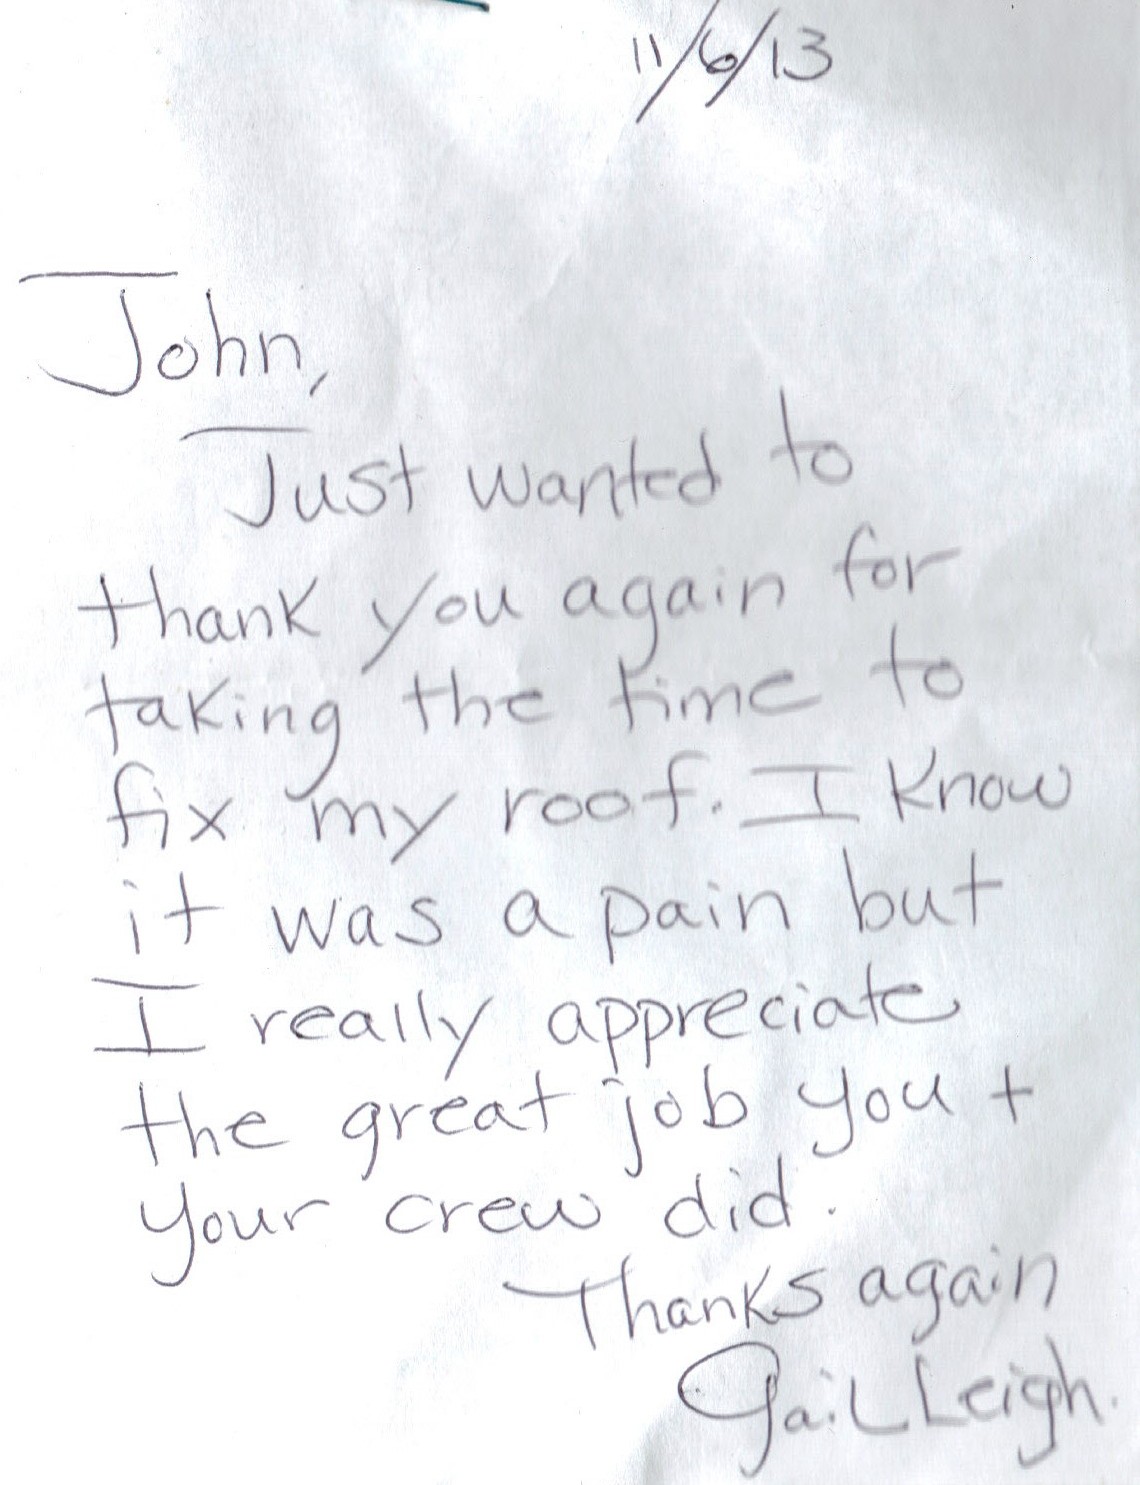 11/6/13
John,
Just wanted to
thank you again for
taking the time to
fix my roof. I know
it was a pain but
I really appreciate
the great job you +
your crew did.
Thanks again
Gail Leigh.